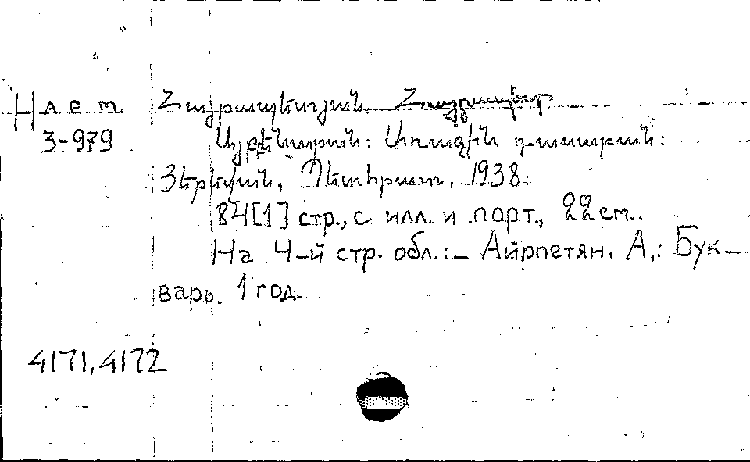 Н а е т Հայրապետյան Հայրապետ
3-979 Այբբենարան: Առաջին դասարան:
Յերևան, Պետհրատ, 1938.
84[1] стр., с илл. и порт., 22см.
На 4-й стр. обл.:– Айрпетян. А.: Бук–
варь. 1 год.
4171,4172